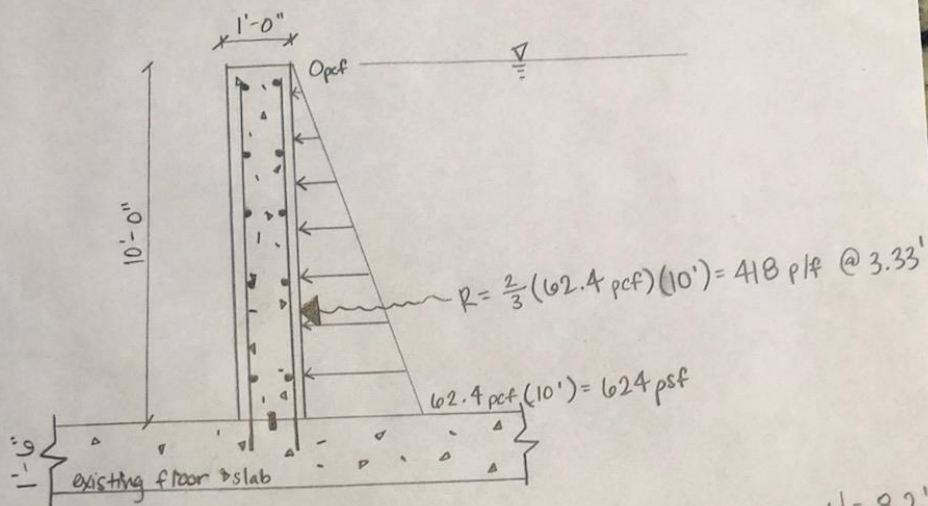 1'-0"
0pcf
10'-0"
R = 2/3 (62.4 pcf)(10') = 418 plf @ 3.33'
62.4 pcf (10') = 624 psf
existing floor slab